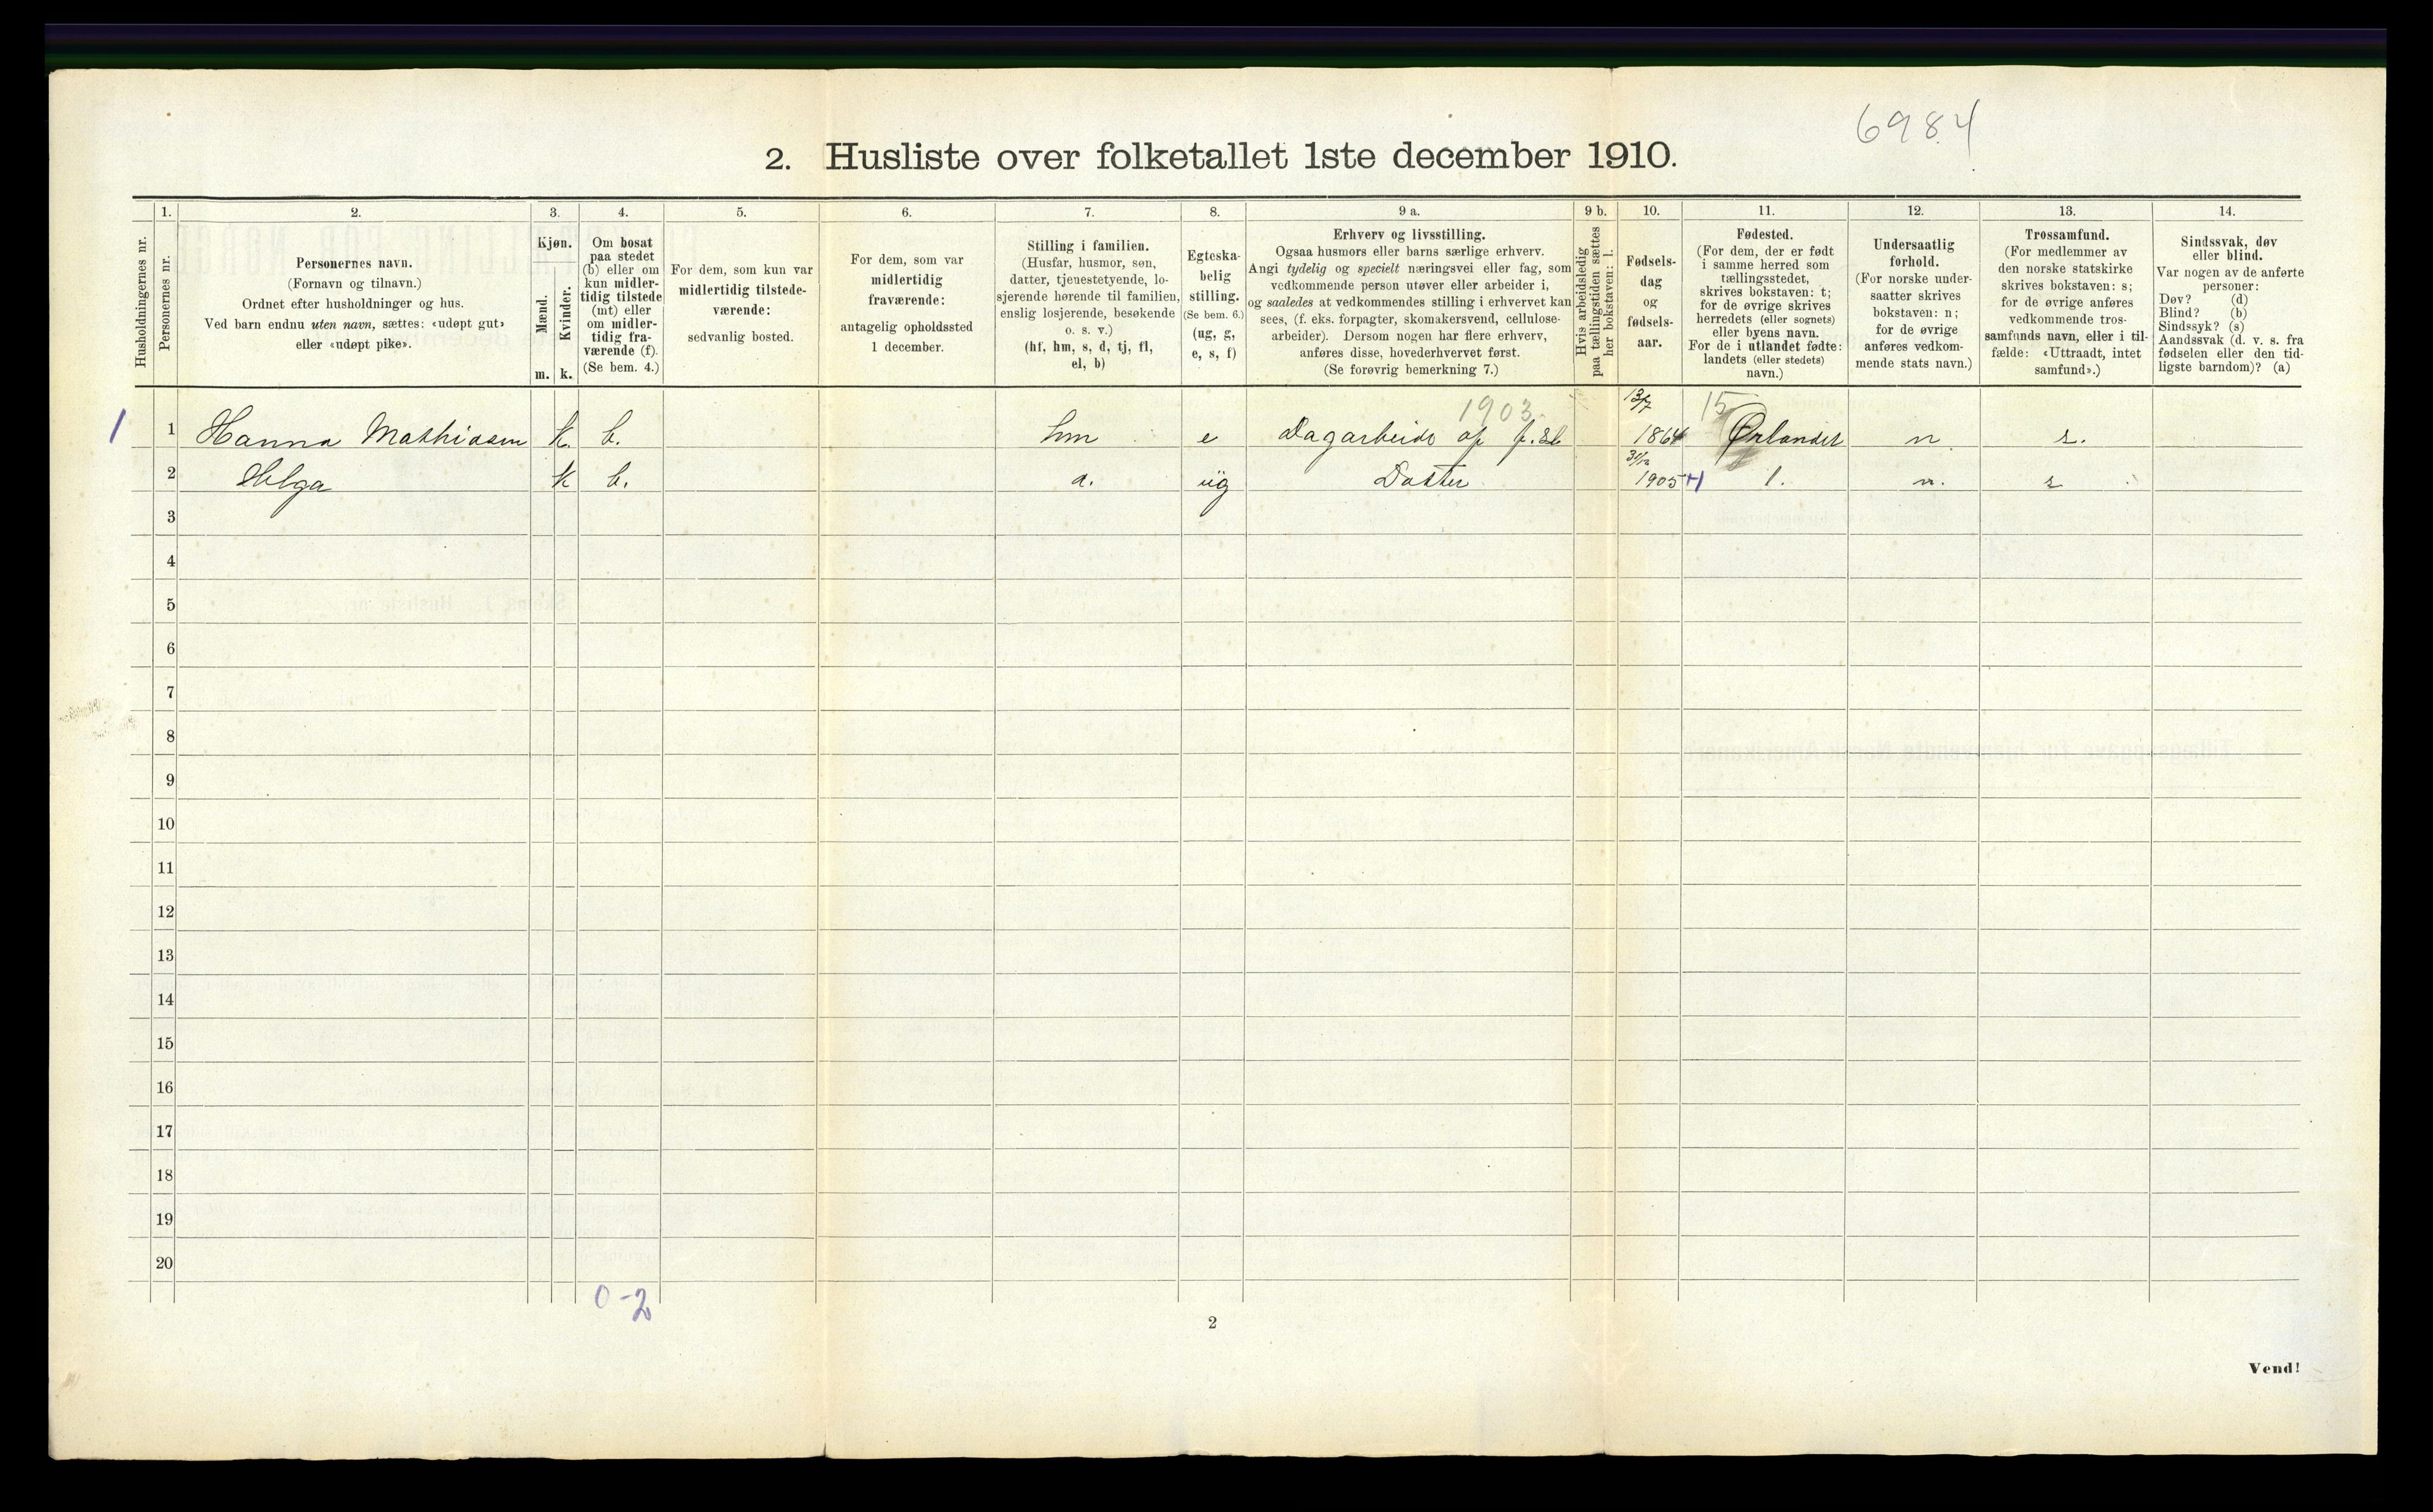 6984
2. Husliste over folketallet 1ste december 1910.
Husholdningernes nr.
1.
Personernes nr.
2.
Personernes navn.
(Fornavn og tilnavn.)
Ordnet efter husholdninger og hus.
Ved barn endnu uten navn, sættes: «udøpt gut»
eller «udøpt pike».
3.
Kjøn.
Mænd.
Kvinder.
m. k.
4.
Om bosat
paa stedet
(b) eller om
kun midler-
tidig tilstede
(mt) eller
om midler-
tidig fra-
værende (f).
(Se bem. 4.)
5.
For dem, som kun var
midlertidig tilstede-
værende:
sedvanlig bosted.
6.
For dem, som var
midlertidig
fraværende:
antagelig opholdssted
1 december.
7.
Stilling i familien.
(Husfar, husmor, søn,
datter, tjenestetyende, lo-
sjerende hørende til familien,
enslig losjerende, besøkende
o. s. v.)
(hf, hm, s, d, tj, fl,
el, b)
8.
Egteska-
belig
stilling.
(Se bem. 6.)
(ug, g,
e, s, f)
9 a.
Erhverv og livsstilling.
Ogsaa husmors eller barns særlige erhverv.
Angi tydelig og specielt næringsvei eller fag, som
vedkommende person utøver eller arbeider i,
og saaledes at vedkommendes stilling i erhvervet kan
sees, (f. eks. forpagter, skomakersvend, cellulose-
arbeider). Dersom nogen har flere erhverv,
anføres disse, hovederhvervet først.
(Se forøvrig bemerkning 7.)
9 b.
Hvis arbeidsledig
paa tællingstiden sættes
her bokstaven: l.
10.
Fødsels-
dag
og
fødsels-
aar.
11.
Fødested.
(For dem, der er født
i samme herred som
tællingsstedet,
skrives bokstaven: t;
for de øvrige skrives
herredets (eller sognets)
eller byens navn.
For de i utlandet fødte:
landets (eller stedets)
navn.)
12.
Undersaatlig
forhold.
(For norske under-
saatter skrives
bokstaven: n;
for de øvrige
anføres vedkom-
mende stats navn.)
13.
Trossamfund.
(For medlemmer av
den norske statskirke
skrives bokstaven: s;
for de øvrige anføres
vedkommende tros-
samfunds navn, eller i til-
fælde: «Uttraadt, intet
samfund».)
14.
Sindssvak, døv
eller blind.
Var nogen av de anførte
personer:
Døv? (d)
Blind? (b)
Sindssyk? (s)
Aandssvak (d. v. s. fra
fødselen eller den tid-
ligste barndom)? (a)
1903. 13/7 15
1 1 Hanna Mathiasen k. b. hm e Dagarbeide 1864 Ørlandet n s.
31/12
2 Helga k b. d. ug Datter 1905 t. n. s
3
4
5
6
7
8
9
10
11
12
13
14
15
16
17
18
19
20
0-2
2
Vend!